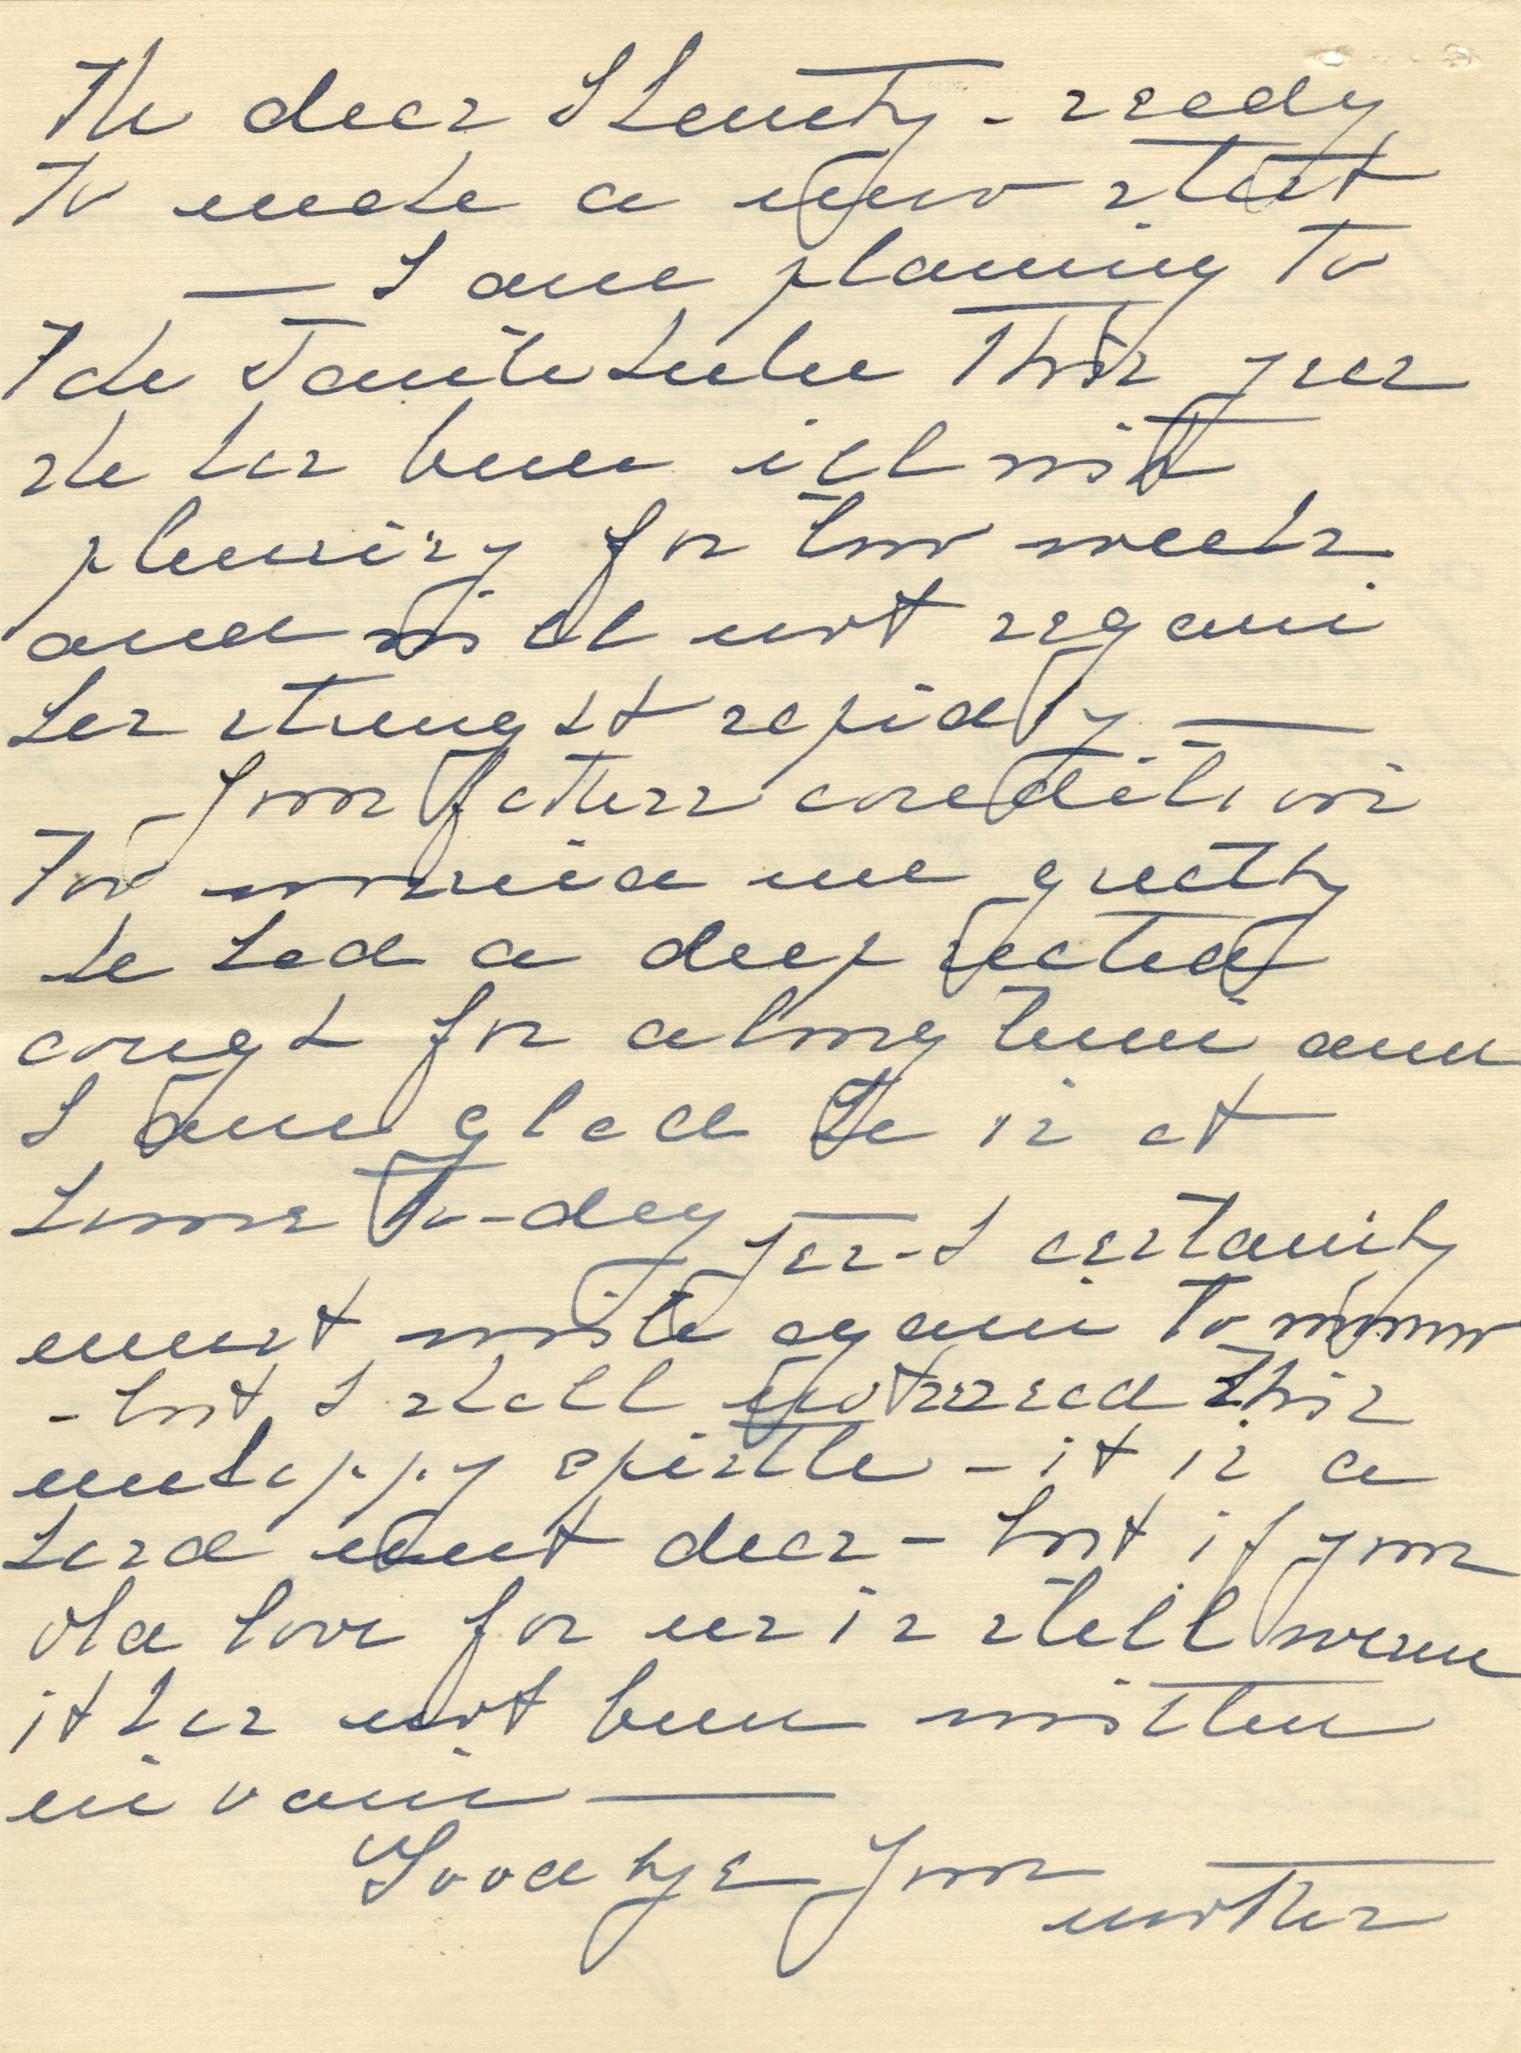 The dear Shanty - ready
to make a new start
— I am planning to
take Tante Lulu this year
she has been ill with
pleurisy for two weeks
and will not regain
her strenght rapidly —
Your fathers condition
too worried me greatly
he had a deep seated
cough for a long time and
I am glad he is at
home to-day
Yes - I certainly
must write again tomorrow
- but I shall not reread this
unhappy epistle - it is a
hard nut dear - but if your
old love for us is still warm
it has not been written
in vain —
Good bye Your
mother